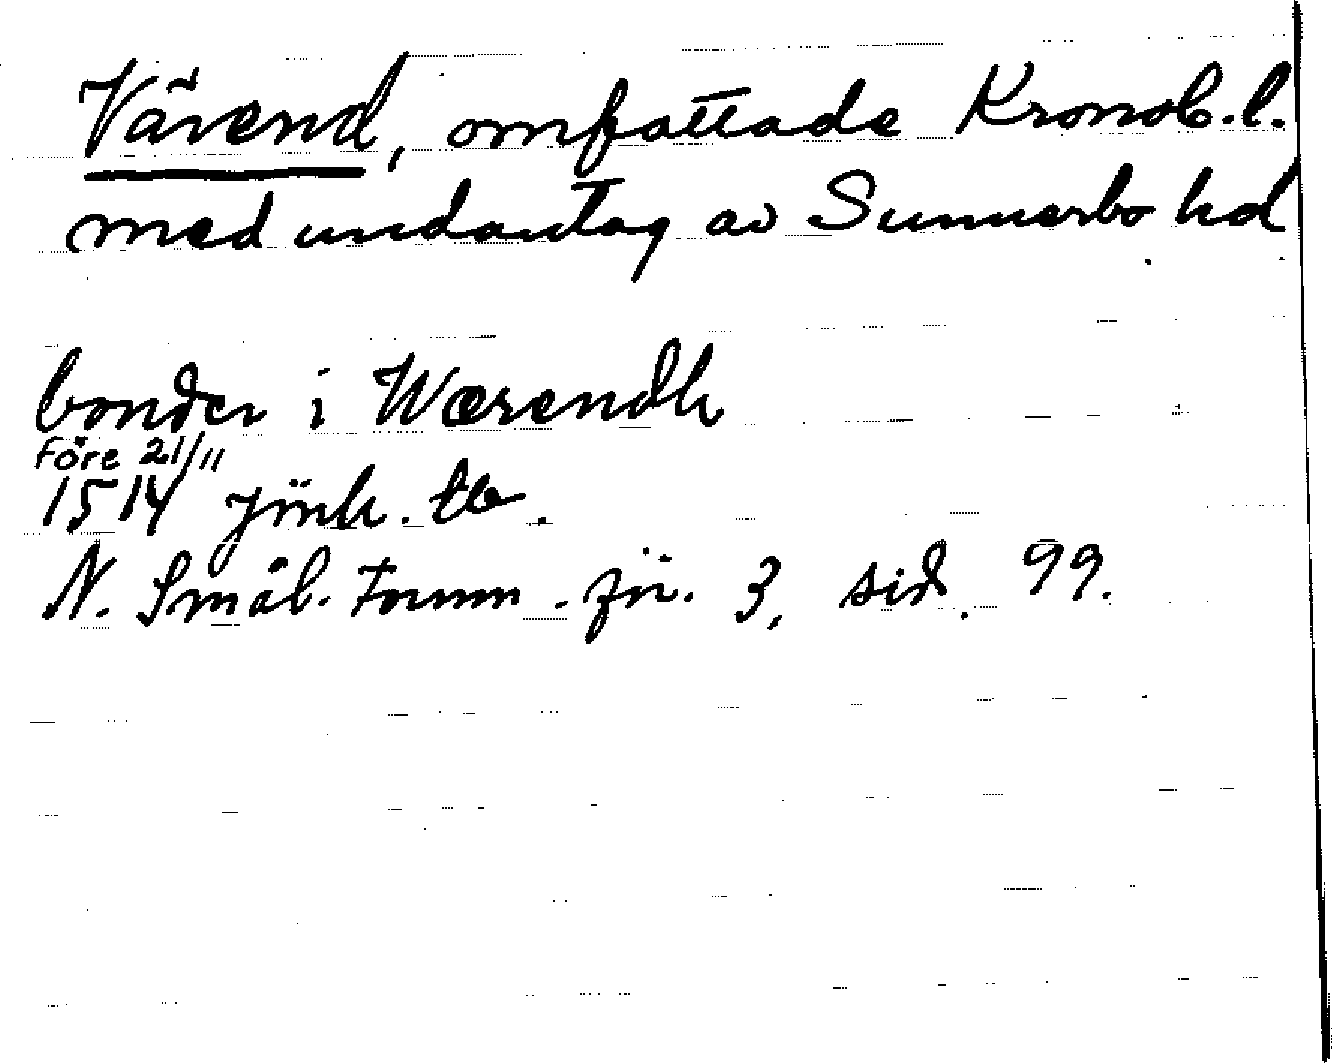 Värend, omfattade Kronob. l.
med undantag av Sunnerbo hd
bonder i Wærendh
Före 21/11
1514 Jönk. tb.
N. Smål. Fornm. för. 3, sid. 99.